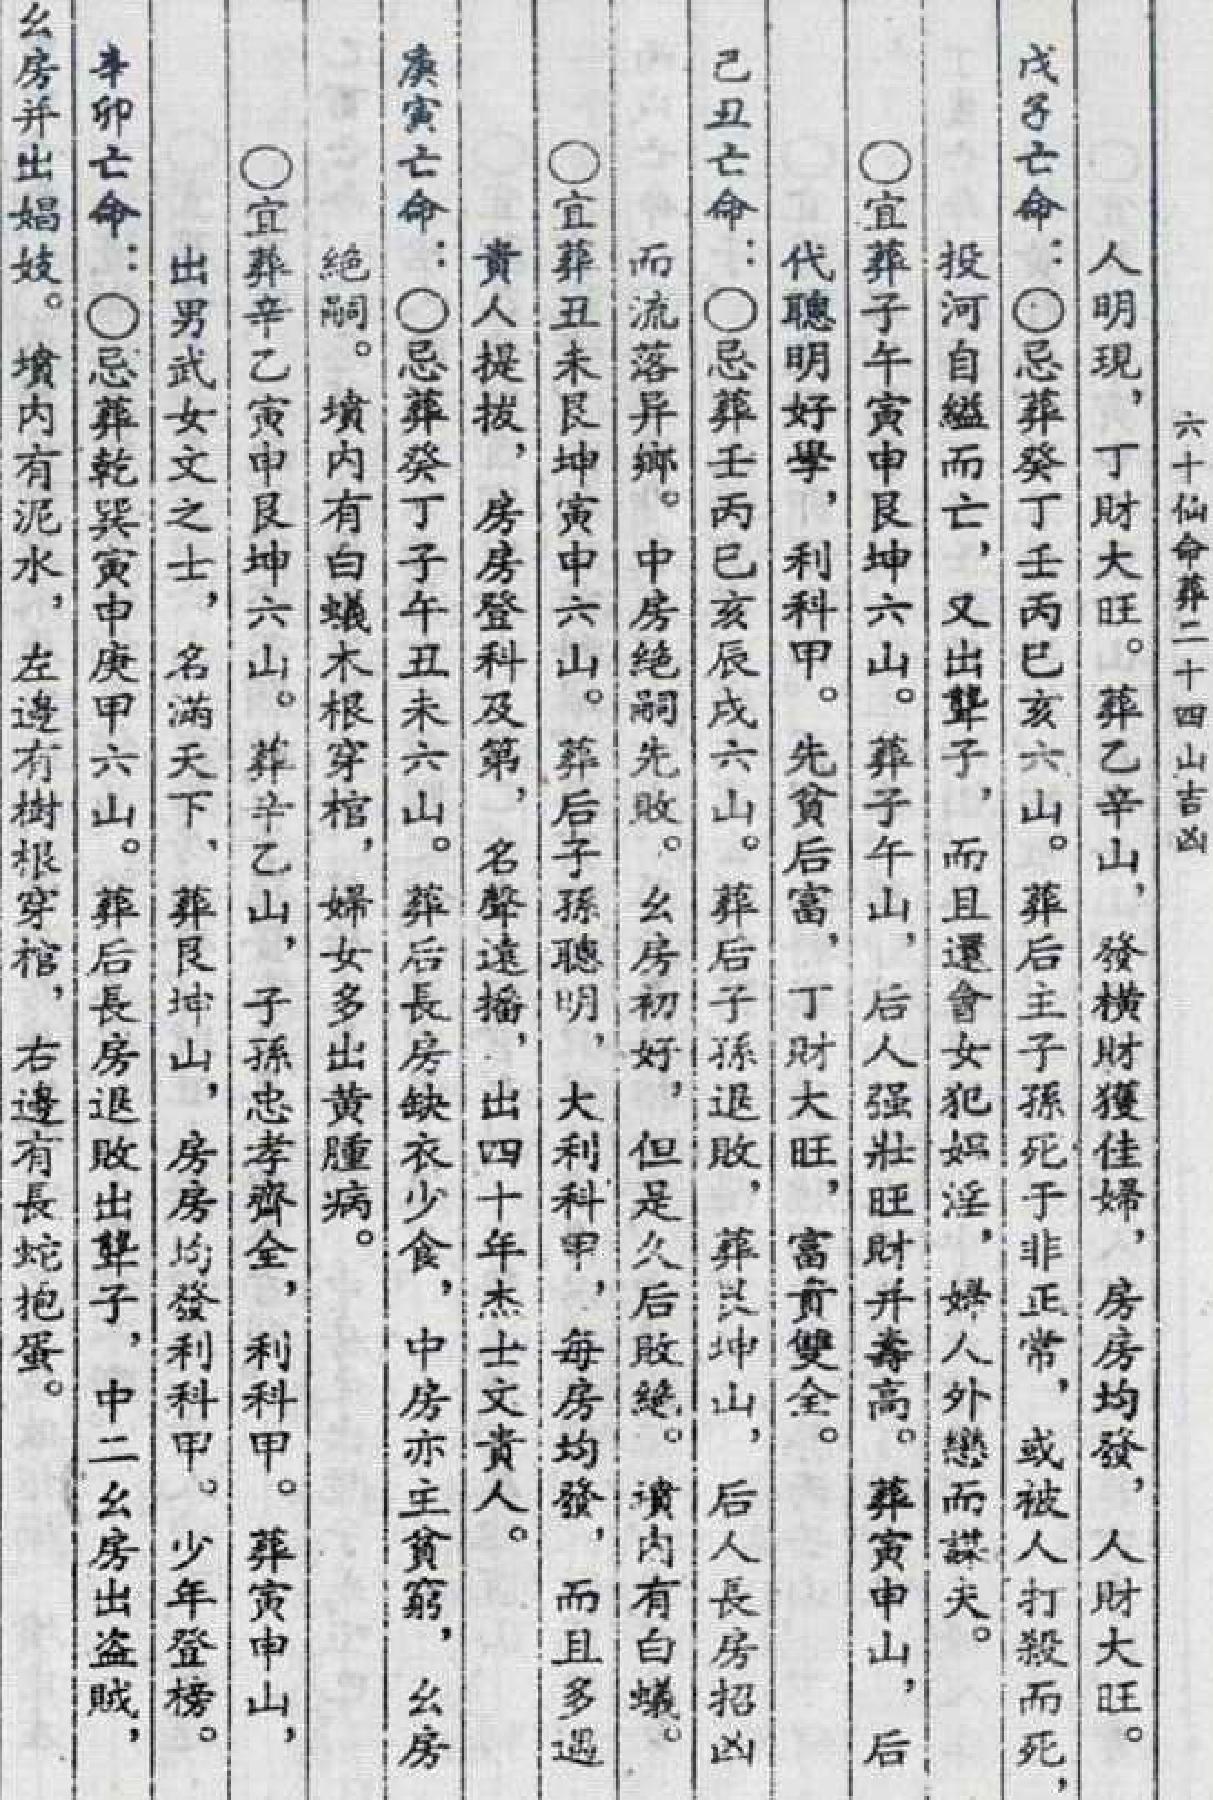 六十仙命葬二十四山吉凶
人明現，丁財大旺。葬乙辛山，發橫財獲佳婦，房房均發，人財大旺。
戊子亡命：○忌葬癸丁壬丙巳亥六山。葬后主子孫死于非正常，或被人打殺而死，
投河自縊而亡，又出聾子，而且還會女犯娼淫，婦人外戀而謀夫。
○宜葬子午寅申艮坤六山。葬子午山，后人强壯旺財并壽高。葬寅申山，后
代聰明好學，利科甲。先貧后富，丁財大旺，富貴雙全。
己丑亡命：○忌葬壬丙巳亥辰戌六山。葬后子孫退敗，葬艮坤山，后人長房招凶
而流落异鄉。中房絕嗣先敗。幺房初好，但是久后敗絕。墳内有白蟻。
○宜葬丑未艮坤寅申六山。葬后子孫聰明，大利科甲，每房均發，而且多遇
貴人提拔，房房登科及第，名聲遠播，出四十年杰士文貴人。
庚寅亡命：○忌葬癸丁子午丑未六山。葬后長房缺衣少食，中房亦主貧窮，幺房
絕嗣。墳内有白蟻木根穿棺，婦女多出黄腫病。
○宜葬辛乙寅申艮坤六山。葬辛乙山，子孫忠孝齊全，利科甲。葬寅申山，
出男武女文之士，名滿天下、葬艮坤山，房房均發利科甲。少年登榜。
辛卯亡命：○忌葬乾巽寅申庚甲六山。葬后長房退敗出聾子，中二幺房出盗賊，
幺房并出娼妓。墳内有泥水，左邊有樹根穿棺，右邊有長蛇抱蛋。